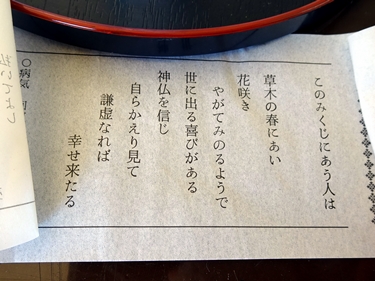 このみくじにあう人は
草木の春にあい
花咲き
やがてみのるようで
世に出る喜びがある
神仏を信じ
自らかえり見て
謙虚なれば
幸せ来たる
〇病気